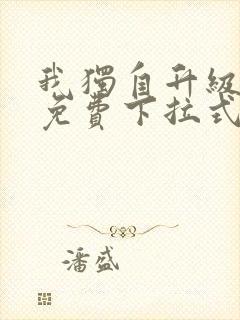 我獨自升級
免費下拉式
潘盛